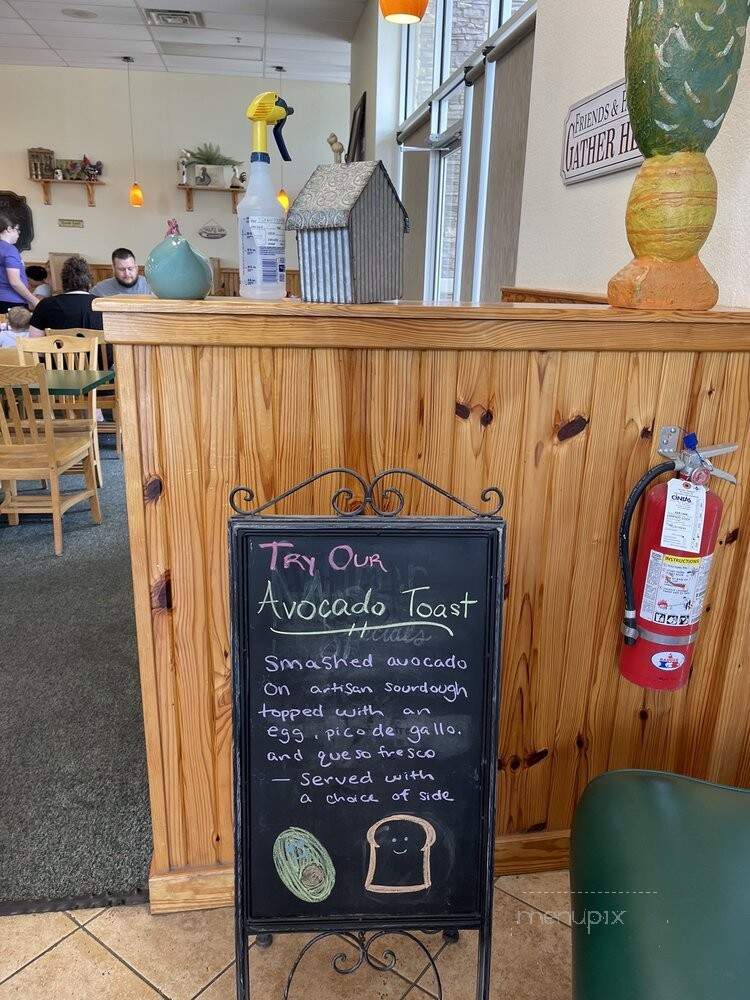 FRIENDS &
GATHER HE
CINTAS
INSTRUCTIONS
TRY OUR
Avocado Toast
Smashed avocado
on artisan sourdough
topped with an
egg, pico de gallo.
and queso fresco
— Served with
a choice of side
menupix